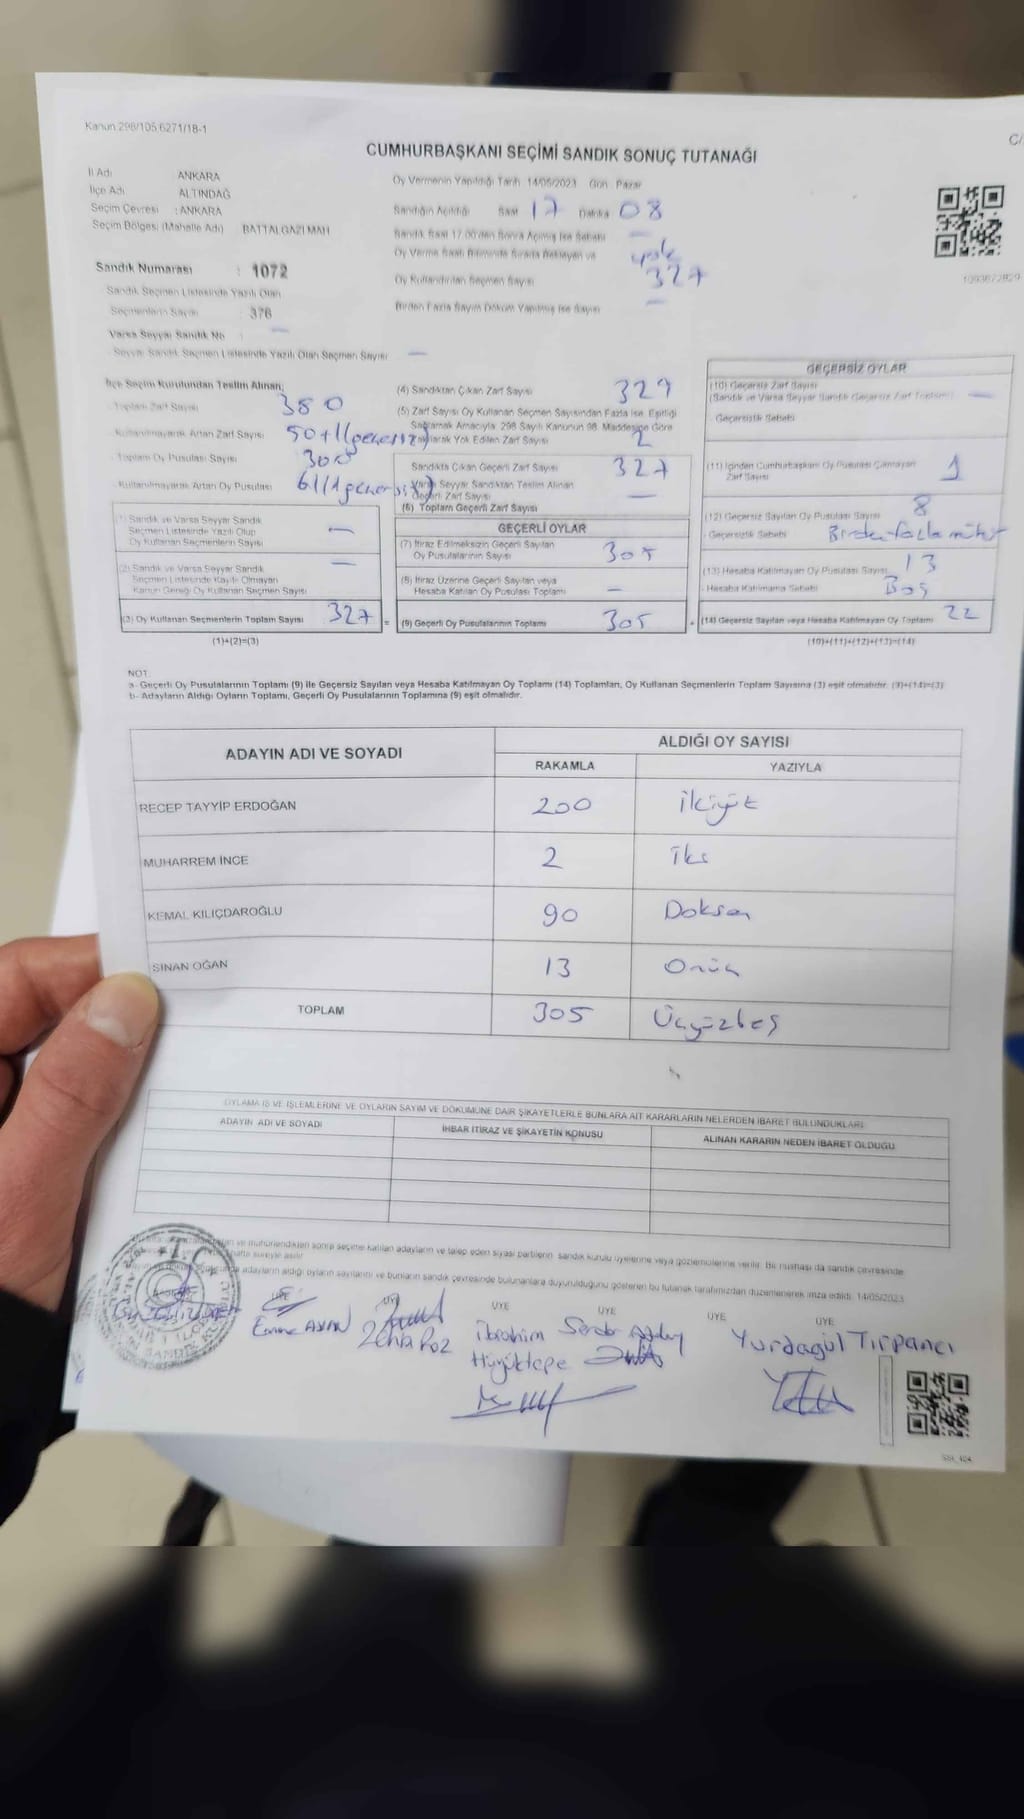 Kanun 298/105,6271/18-1
CUMHURBAŞKANI SEÇİMİ SANDIK SONUÇ TUTANAĞI
C/
İl Adı ANKARA
İlçe Adı ALTINDAĞ
Seçim Çevresi : ANKARA
Seçim Bölgesi (Mahalle Adı) BATTALGAZİ MAH
Sandık Numarası : 1072
Sandık Seçmen Listesinde Yazılı Olan
Seçmenlerin Sayısı : 376
Varsa Seyyar Sandık No : —
Seyyar Sandık Seçmen Listesinde Yazılı Olan Seçmen Sayısı —
Oy Vermenin Yapıldığı Tarih 14/05/2023 Gün Pazar
Sandığın Açıldığı Saat 17 Dakika 08
Sandık Saat 17.00'den Sonra Açılmış İse Sebebi —
Oy Verme Saati Bitiminde Sırada Bekleyen ve yok
Oy Kullandırılan Seçmen Sayısı 327
Birden Fazla Sayım Döküm Yapılmış İse Sayısı —
İlçe Seçim Kurulundan Teslim Alınan;
Toplam Zarf Sayısı 380
Kullanılmayarak Artan Zarf Sayısı 50+1(geçersiz)
Toplam Oy Pusulası Sayısı
Kullanılmayarak Artan Oy Pusulası
(1) Sandık ve Varsa Seyyar Sandık
Seçmen Listesinde Yazılı Olup
Oy Kullanan Seçmenlerin Sayısı —
(2) Sandık ve Varsa Seyyar Sandık
Seçmen Listesinde Kayıtlı Olmayan
Kanun Gereği Oy Kullanan Seçmen Sayısı —
(3) Oy Kullanan Seçmenlerin Toplam Sayısı 327
(1)+(2)=(3)
(4) Sandıktan Çıkan Zarf Sayısı 327
(5) Zarf Sayısı Oy Kullanan Seçmen Sayısından Fazla İse, Eşitliği
Sağlamak Amacıyla, 298 Sayılı Kanunun 98. Maddesine Göre
Yakılarak Yok Edilen Zarf Sayısı
Sandıkta Çıkan Geçerli Zarf Sayısı 327
Varsa Seyyar Sandıktan Teslim Alınan
Geçerli Zarf Sayısı —
(6) Toplam Geçerli Zarf Sayısı
GEÇERLİ OYLAR
(7) İtiraz Edilmeksizin Geçerli Sayılan
Oy Pusulalarının Sayısı 305
(8) İtiraz Üzerine Geçerli Sayılan veya
Hesaba Katılan Oy Pusulası Toplamı —
= (9) Geçerli Oy Pusulalarının Toplamı 305
GEÇERSİZ OYLAR
(10) Geçersiz Zarf Sayısı
(Sandık ve Varsa Seyyar Sandık Geçersiz Zarf Toplamı) —
Geçersizlik Sebebi
(11) İçinden Cumhurbaşkanı Oy Pusulası Çıkmayan
Zarf Sayısı 1
(12) Geçersiz Sayılan Oy Pusulası Sayısı 8
Geçersizlik Sebebi Birden fazla mühür
(13) Hesaba Katılmayan Oy Pusulası Sayısı 13
Hesaba Katılmama Sebebi Boş
+ (14) Geçersiz Sayılan veya Hesaba Katılmayan Oy Toplamı 22
(10)+(11)+(12)+(13)=(14)
NOT:
a- Geçerli Oy Pusulalarının Toplamı (9) ile Geçersiz Sayılan veya Hesaba Katılmayan Oy Toplamı (14) Toplamları, Oy Kullanan Seçmenlerin Toplam Sayısına (3) eşit olmalıdır. (9)+(14)=(3)
b- Adayların Aldığı Oyların Toplamı, Geçerli Oy Pusulalarının Toplamına (9) eşit olmalıdır.
ADAYIN ADI VE SOYADI
ALDIĞI OY SAYISI
RAKAMLA YAZIYLA
RECEP TAYYİP ERDOĞAN 200 İkiyüz
MUHARREM İNCE 2 İki
KEMAL KILIÇDAROĞLU 90 Doksan
SİNAN OĞAN 13 Onüç
TOPLAM 305 Üçyüzbeş
OYLAMA İŞ VE İŞLEMLERİNE VE OYLARIN SAYIM VE DÖKÜMÜNE DAİR ŞİKAYETLERLE BUNLARA AİT KARARLARIN NELERDEN İBARET BULUNDUKLARI
ADAYIN ADI VE SOYADI İHBAR İTİRAZ VE ŞİKAYETİN KONUSU ALINAN KARARIN NEDEN İBARET OLDUĞU
mühürlendikten sonra seçime katılan adayların ve talep eden siyasi partilerin sandık kurulu üyelerine veya gözlemcilerine verilir. Bir nüshası da sandık çevresinde
hafta süreyle asılır
adayların aldığı oyların sayılarını ve bunların sandık çevresinde bulunanlara duyurulduğunu gösteren bu tutanak tarafımızdan düzenlenerek imza edildi. 14/05/2023
T.C
ÜYE ÜYE ÜYE ÜYE ÜYE ÜYE
Emine
İbrahim Hüyüktepe
Yurdagül Tırpancı